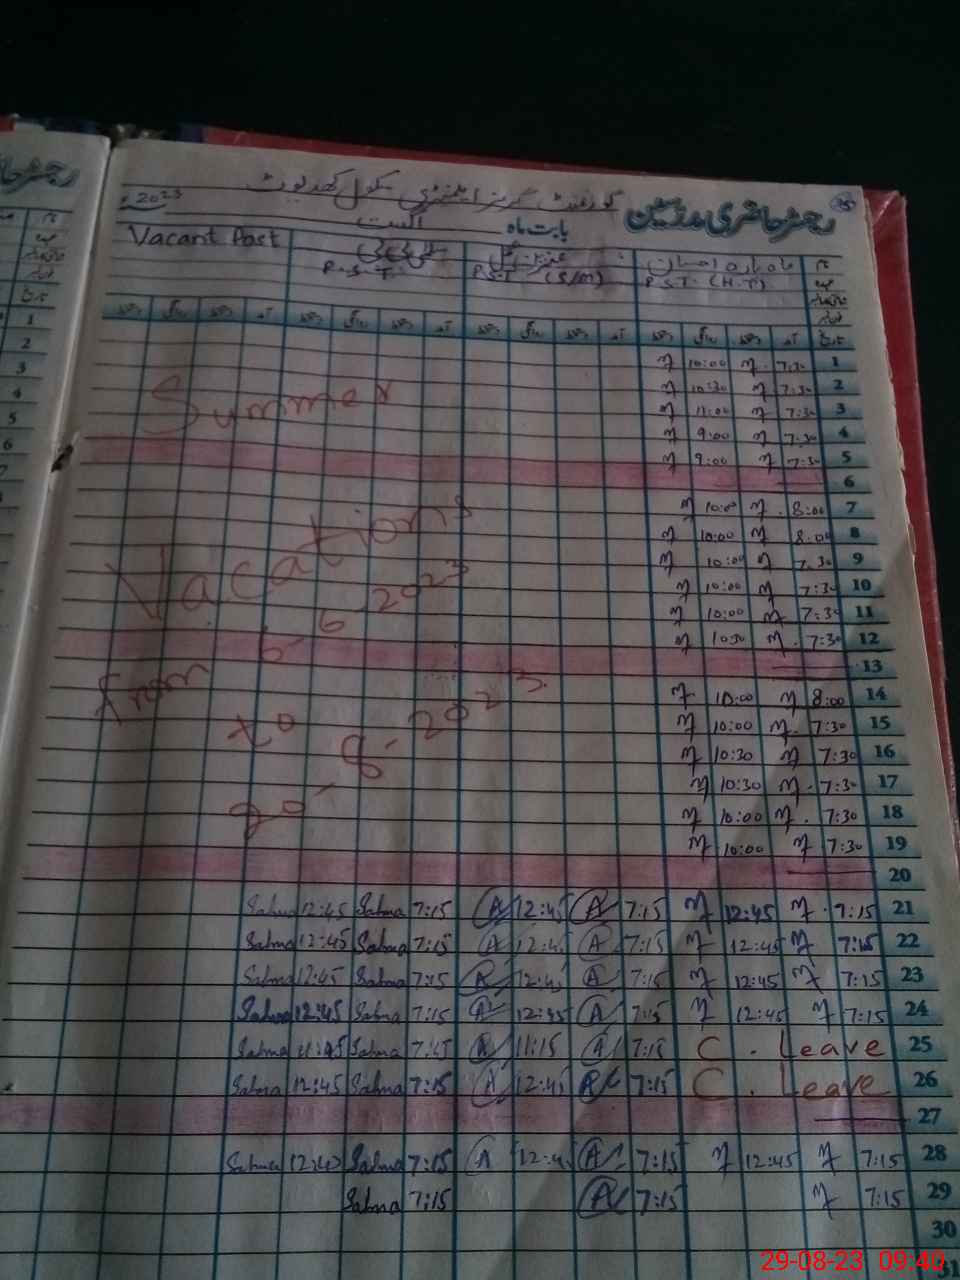 رجسٹر حاضری مدرسین گورنمنٹ گرلز ایلیمنٹری سکول
بابت ماہ اگست 2023ء
نام ماہ پارہ احسان عنبرین گل سلمیٰ بی بی Vacant Post
عہدہ P.S.T. (H.T) P.S.T (S/M) P.S.T.
تاریخ آمد دستخط روانگی دستخط آمد دستخط روانگی دستخط آمد دستخط روانگی دستخط
1 7:30 10:00
2 7:30 10:30
3 7:30 11:00
4 7:30 9:00
5 7:30 9:00
6
7 8:00 10:00
8 8:00 10:00
9 7:30 10:00
10 7:30 10:00
11 7:30 10:00
12 7:30 10:30
13
14 8:00 10:00
15 7:30 10:00
16 7:30 10:30
17 7:30 10:30
18 7:30 10:00
19 7:30 10:00
20
Summer
Vacations
from 6-6-2023
to
20-8-2023.
21 7:15 12:45 7:15 A 12:45 A 7:15 Salma 12:45 Salma
22 7:15 12:45 7:15 A 12:45 A 7:15 Salma 12:45 Salma
23 7:15 12:45 7:15 A 12:45 A 7:15 Salma 12:45 Salma
24 7:15 12:45 7:15 A 12:45 A 7:15 Salma 12:45 Salma
25 C. Leave 7:15 A 11:15 A 7:15 Salma Salma
26 C. Leave 7:15 A 12:45 A 7:15 Salma 12:45 Salma
27
28 7:15 12:45 7:15 A 12:45 A 7:15 Salma 12:45 Salma
29 7:15 7:15 A 7:15 Salma
30
31
29-08-23 09:40